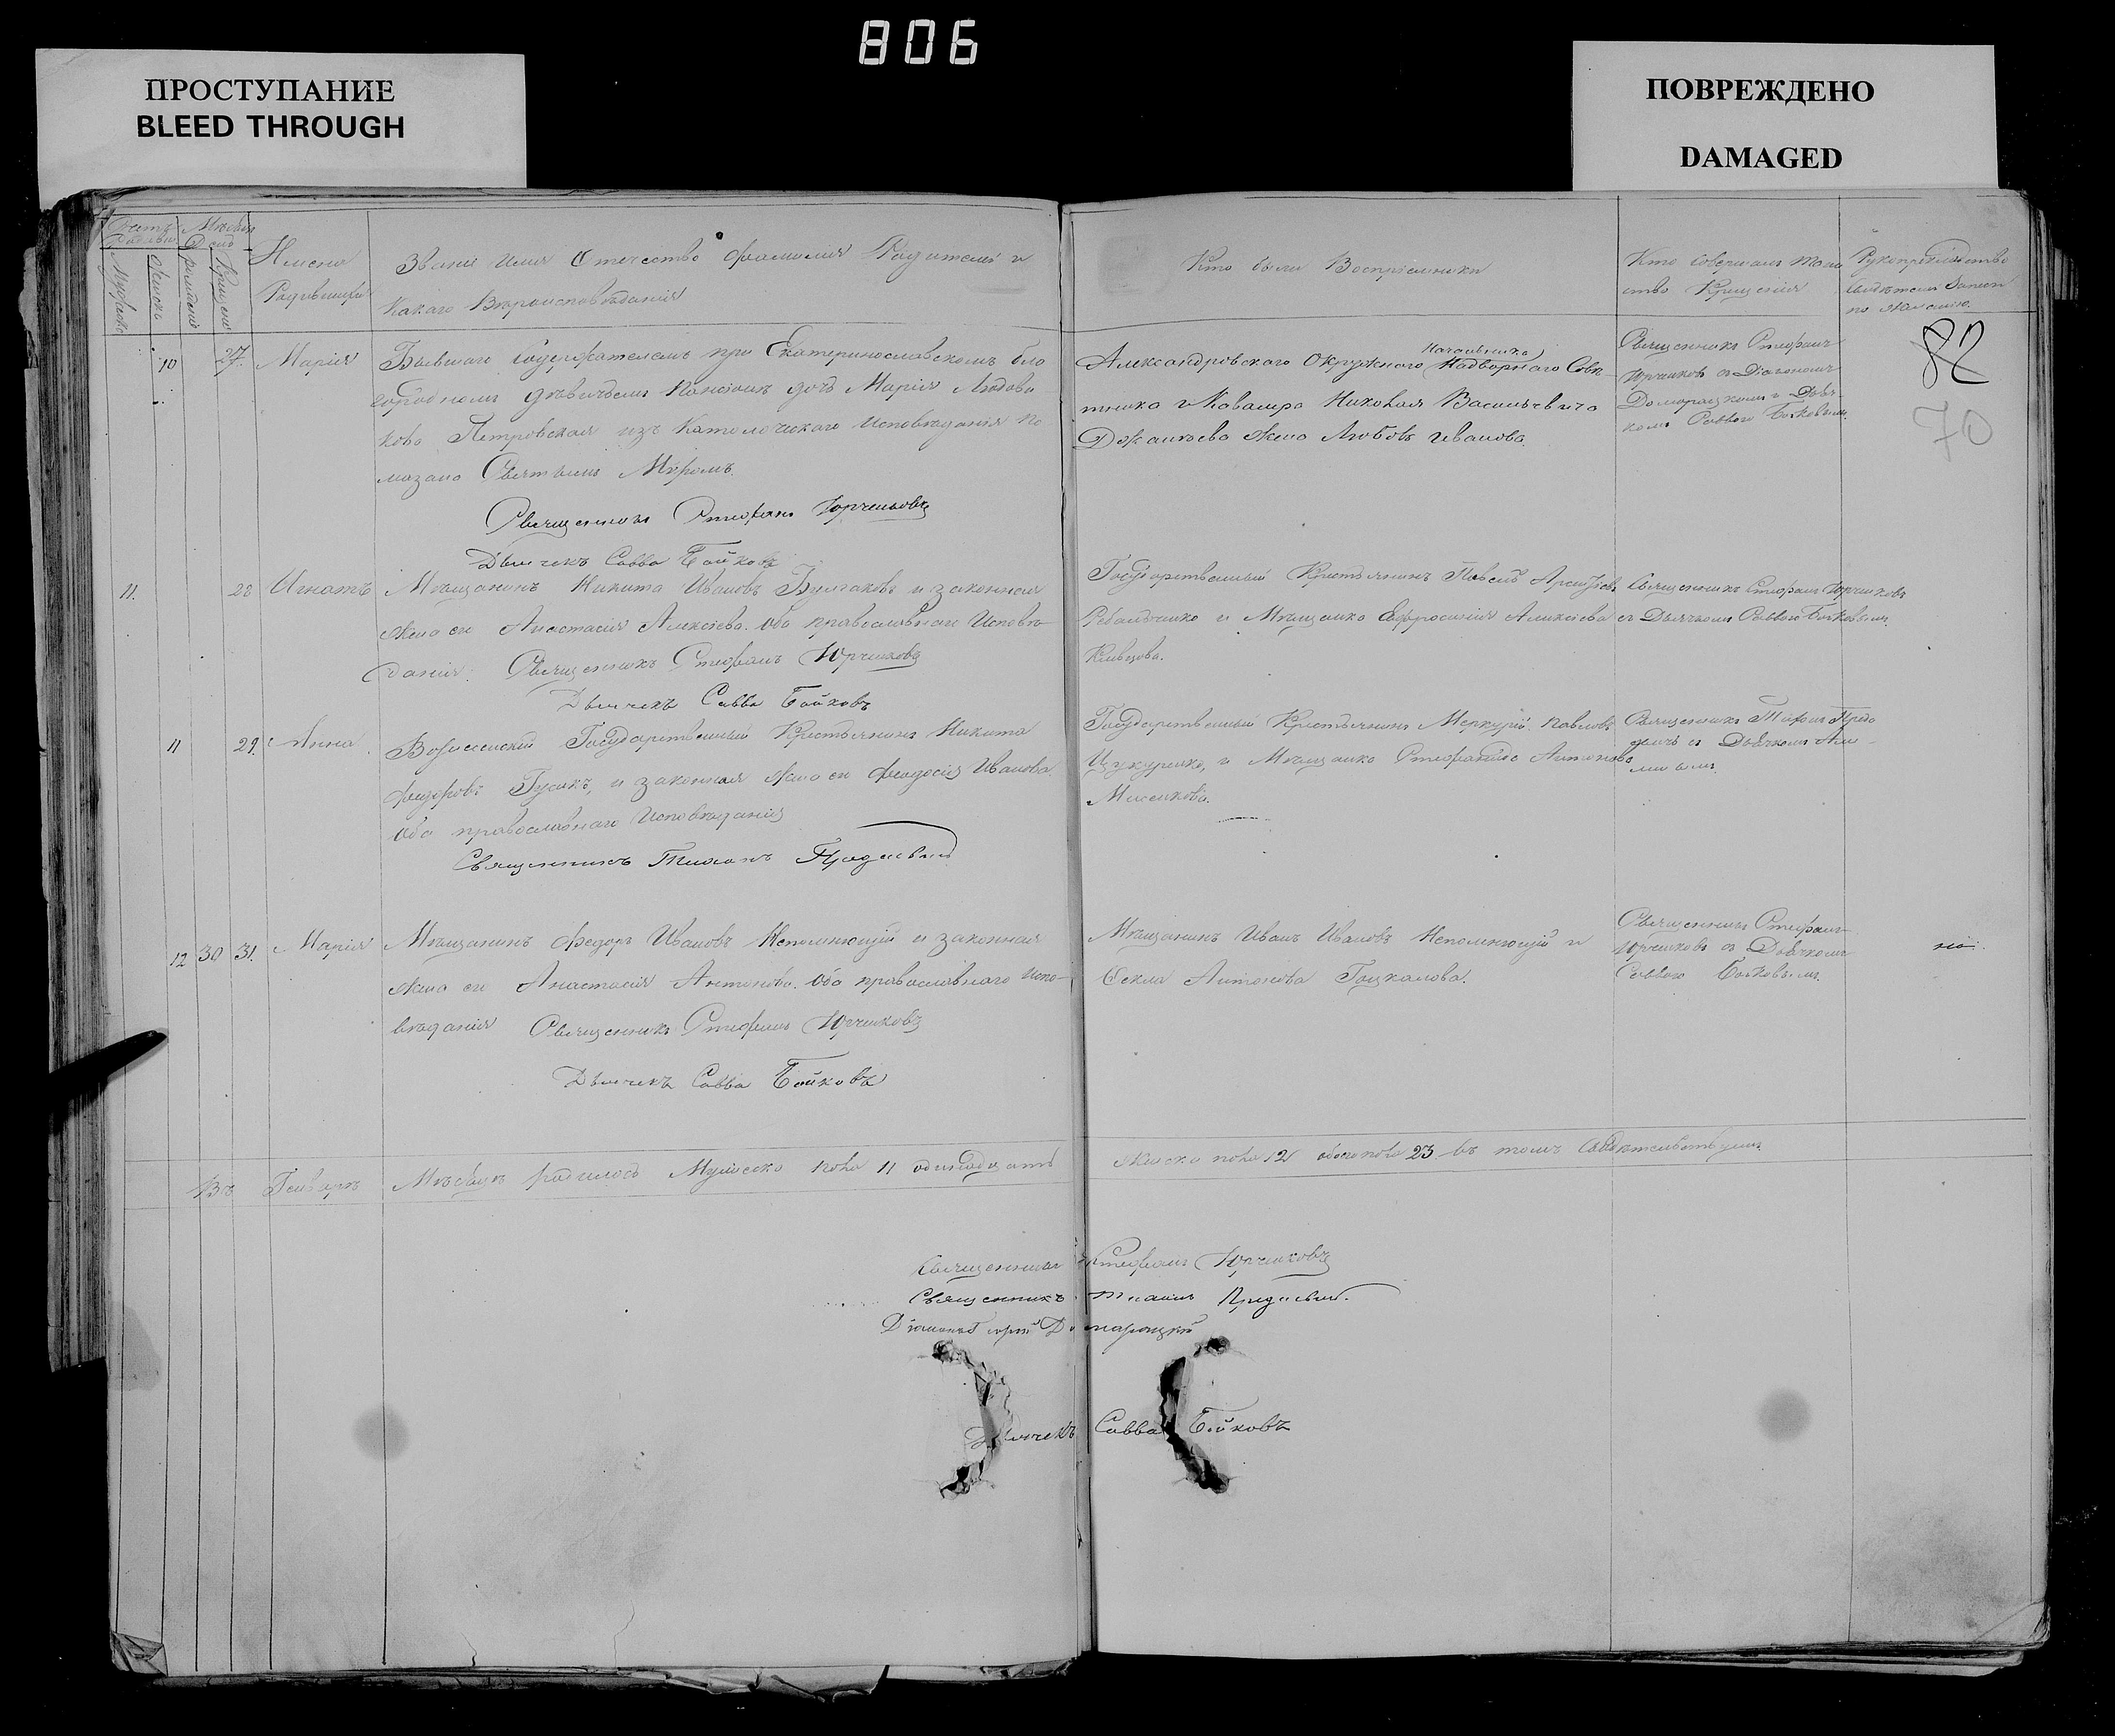 806
ПРОСТУПАНИЕ
BLEED THROUGH
ПОВРЕЖДЕНО
DAMAGED
Имена
Званіе Имя Отечество Фамилія Родителей и
какаго Вѣроисповѣданія
Кто были Воспріемники
Кто совершалъ таин
ство Крещенія
Рукоприкладство
82
70
10 27. Марія
Бывшаго Содержателемъ при Екатеринославскомъ бла
городномъ дѣвичьемъ Пансіонѣ дочь Марія Людови
кова Петровская изъ Католическаго Исповѣданія по
мазана Святымъ Мѵромъ.
Священникъ Стефанъ Юрченковъ
Дьячекъ Савва Бойковъ
Начальника
Александровскаго Окружнаго Надворнаго Совѣ
тника и Кавалера Николая Васильевича
жена Любовь Иванова.
Священникъ Стефанъ
Юрченковъ съ Діакономъ
Домарацкимъ и Дьяч
комъ Саввою Бойковымъ.
11. 28 Игнатъ
Мѣщанинъ Никита Ивановъ Булгаковъ и законная
жена его Анастасія Алексѣева. Оба православнаго Исповѣ
данія. Священникъ Стефанъ Юрченковъ
Дьячекъ Савва Бойковъ
Государственный Крестьянинъ Павелъ
и Мѣщанка Евфросинія Алексѣева
Священникъ Стефанъ Юрченковъ
съ Дьячкомъ Саввою Бойковымъ.
11 29. Анна
Государственный Крестьянинъ Никита
Федоровъ Гусакъ, и законная жена его Феодосія Иванова
Оба православнаго Исповѣданія
Священникъ Тихонъ
Государственный Крестьянинъ Меркурій Павловъ
и Мѣщанка Стефанида Антонова
Священникъ Тихонъ
съ Дьячкомъ
12 30 31. Марія
Мѣщанинъ Федоръ Ивановъ Непомнющій и законная
жена его Анастасія Антонова. Оба православнаго Испо-
вѣданія Священникъ Стефанъ Юрченковъ
Дьячекъ Савва Бойковъ
Мѣщанинъ Иванъ Ивановъ Непомнющій и
Фекла Антонова Гоцкалова.
Священникъ Стефанъ
Юрченковъ съ Дьячкомъ
Саввою Бойковымъ.
Въ Генварѣ Мѣсяцѣ родилось Мужеска пола 11 одинадцать
Женска пола 12 обоего пола 23 въ томъ Свѣдѣтельствуемъ
Священникъ Стефанъ Юрченковъ
Священникъ Тихонъ
Діаконъ Домарацкій
Дьячекъ Савва Бойковъ